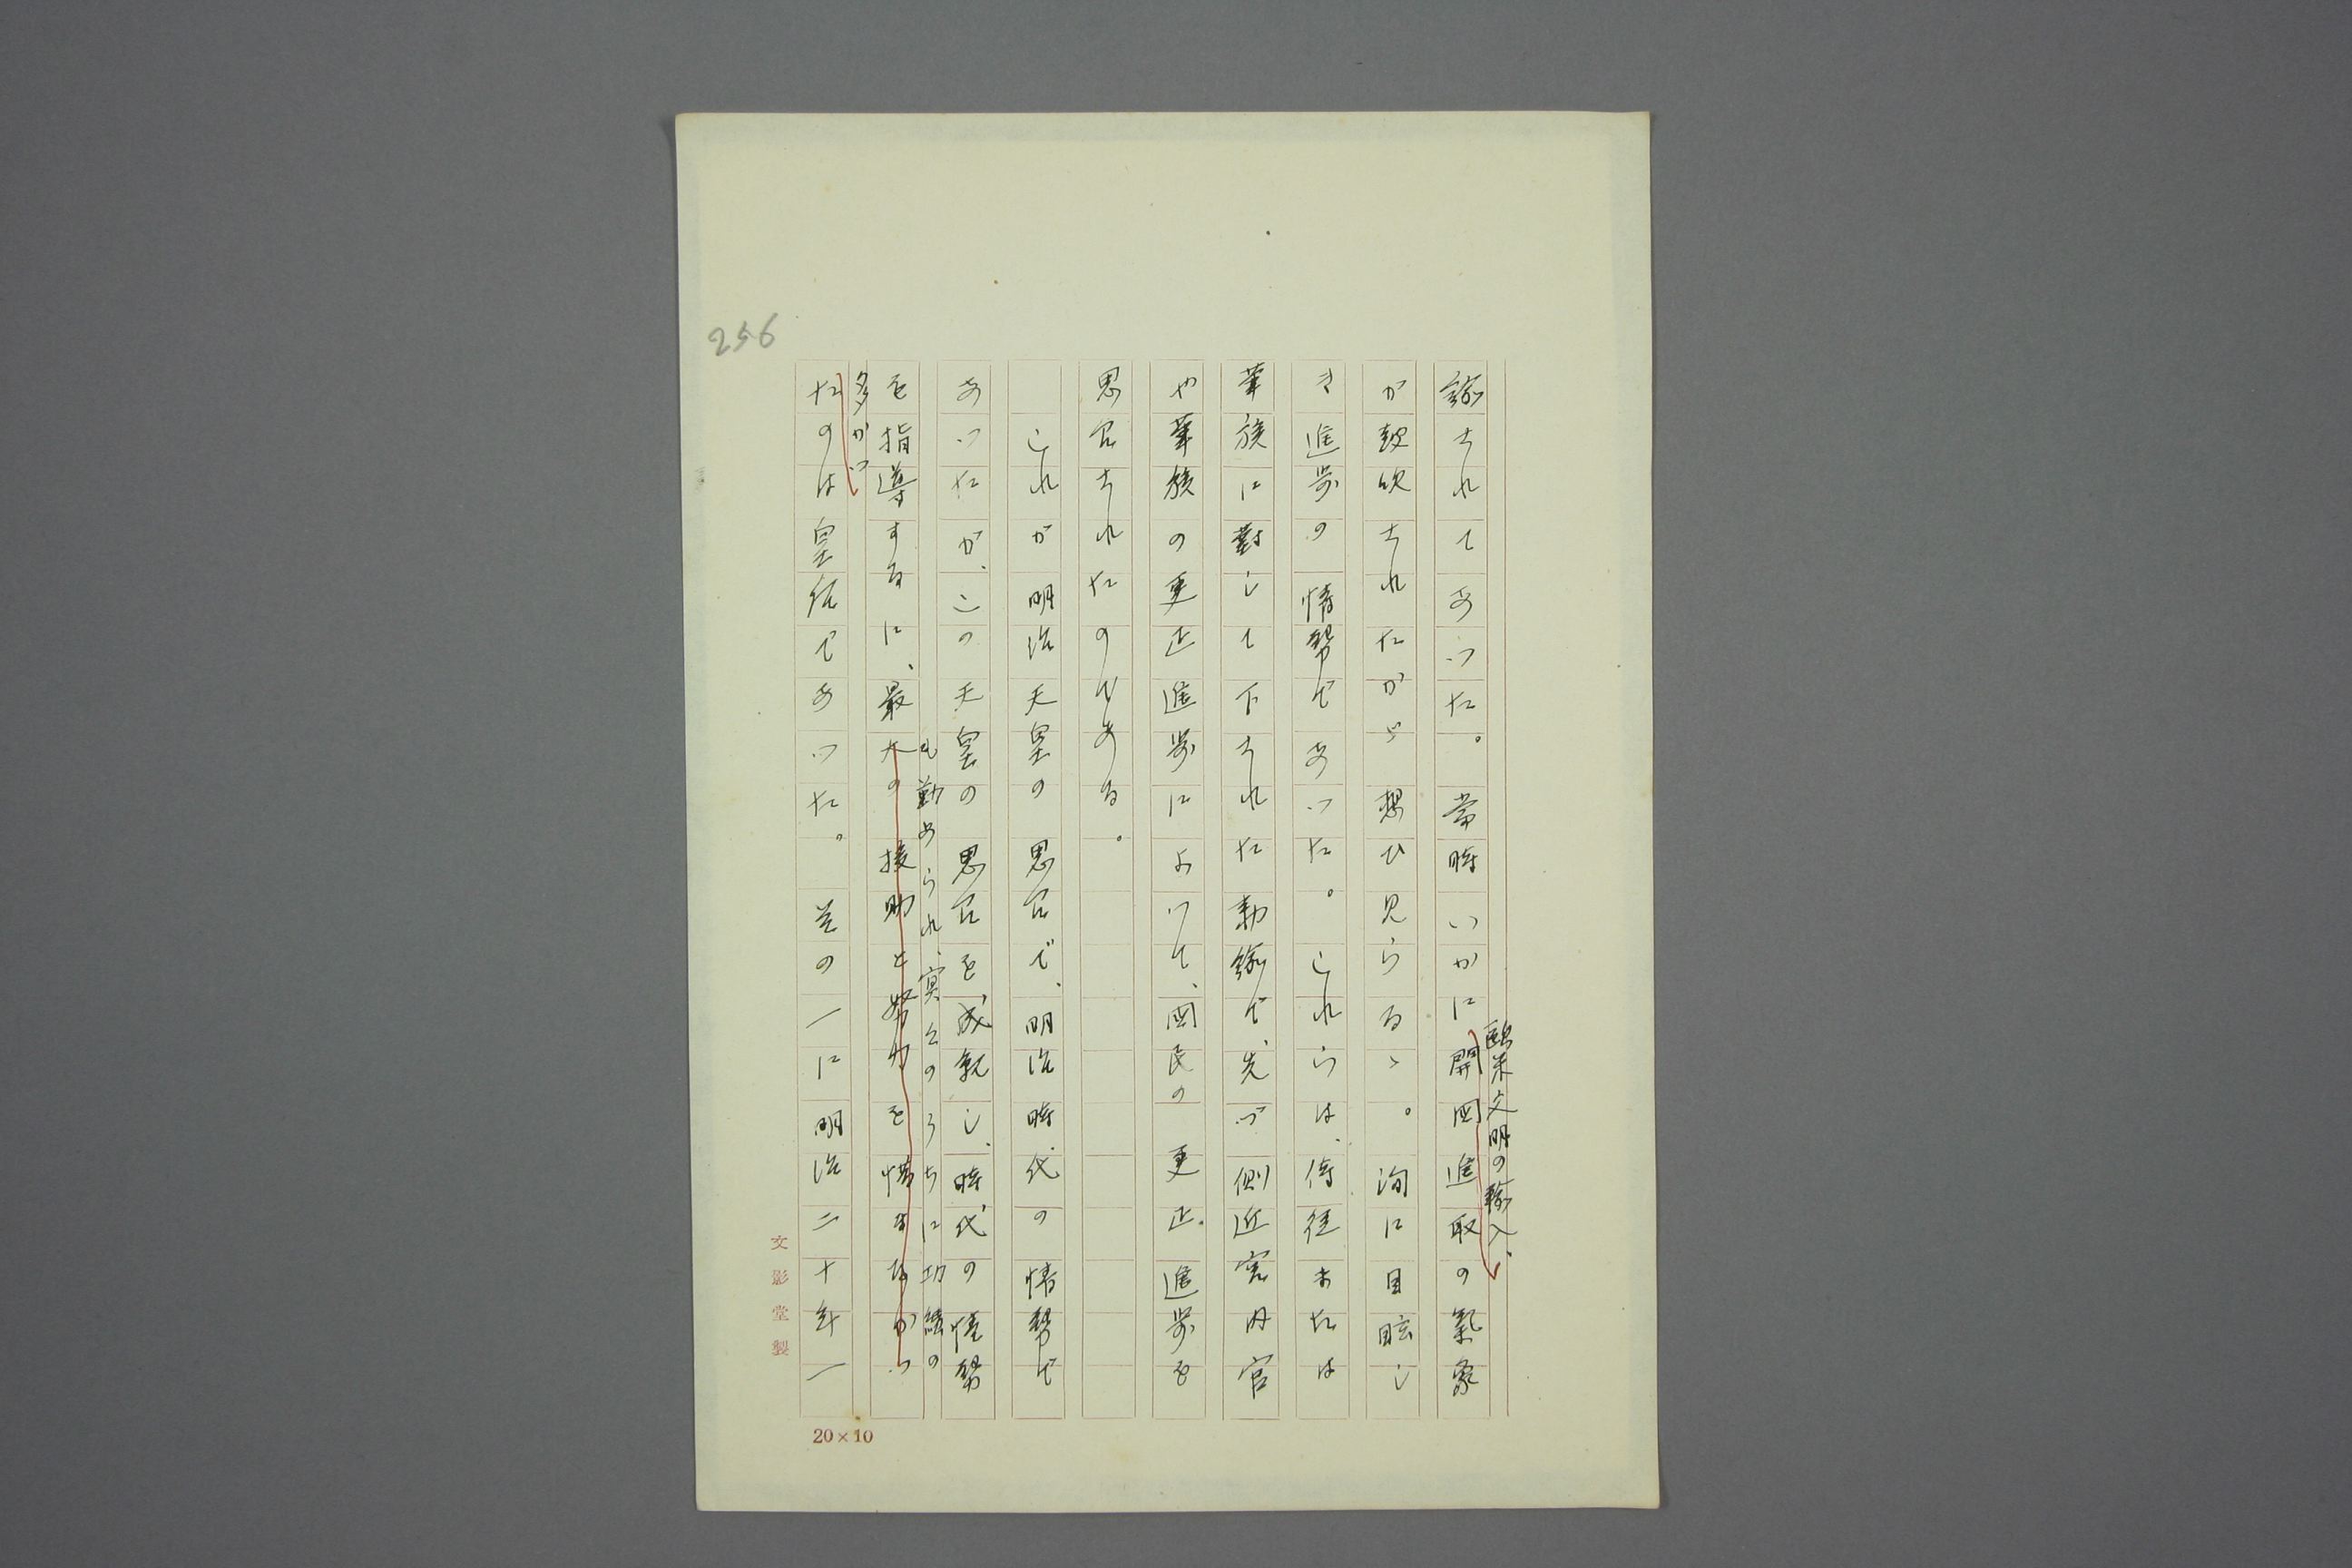 256
諭されてあつた。當時いかに開國進取の氣象
歐米文明の輸入、
が鼓吹されたかゞ想ひ見らるゝ。洵に目眩し
き進歩の情勢であつた。これらは、侍從または
華族に對して下された勅諭で、先づ側近宮内官
や華族の更正進歩によつて、國民の更正進歩を
思召されたのである。
これが明治天皇の思召で、明治時代の情勢で
あつたが、この天皇の思召を成就し、時代の情勢
も勤められ、冥々のうちに功績の
を指導するに、最大の援助と努力を惜まなかつ
多かつ
たのは皇后であつた。その一に明治二十年一
文影堂製
20×10